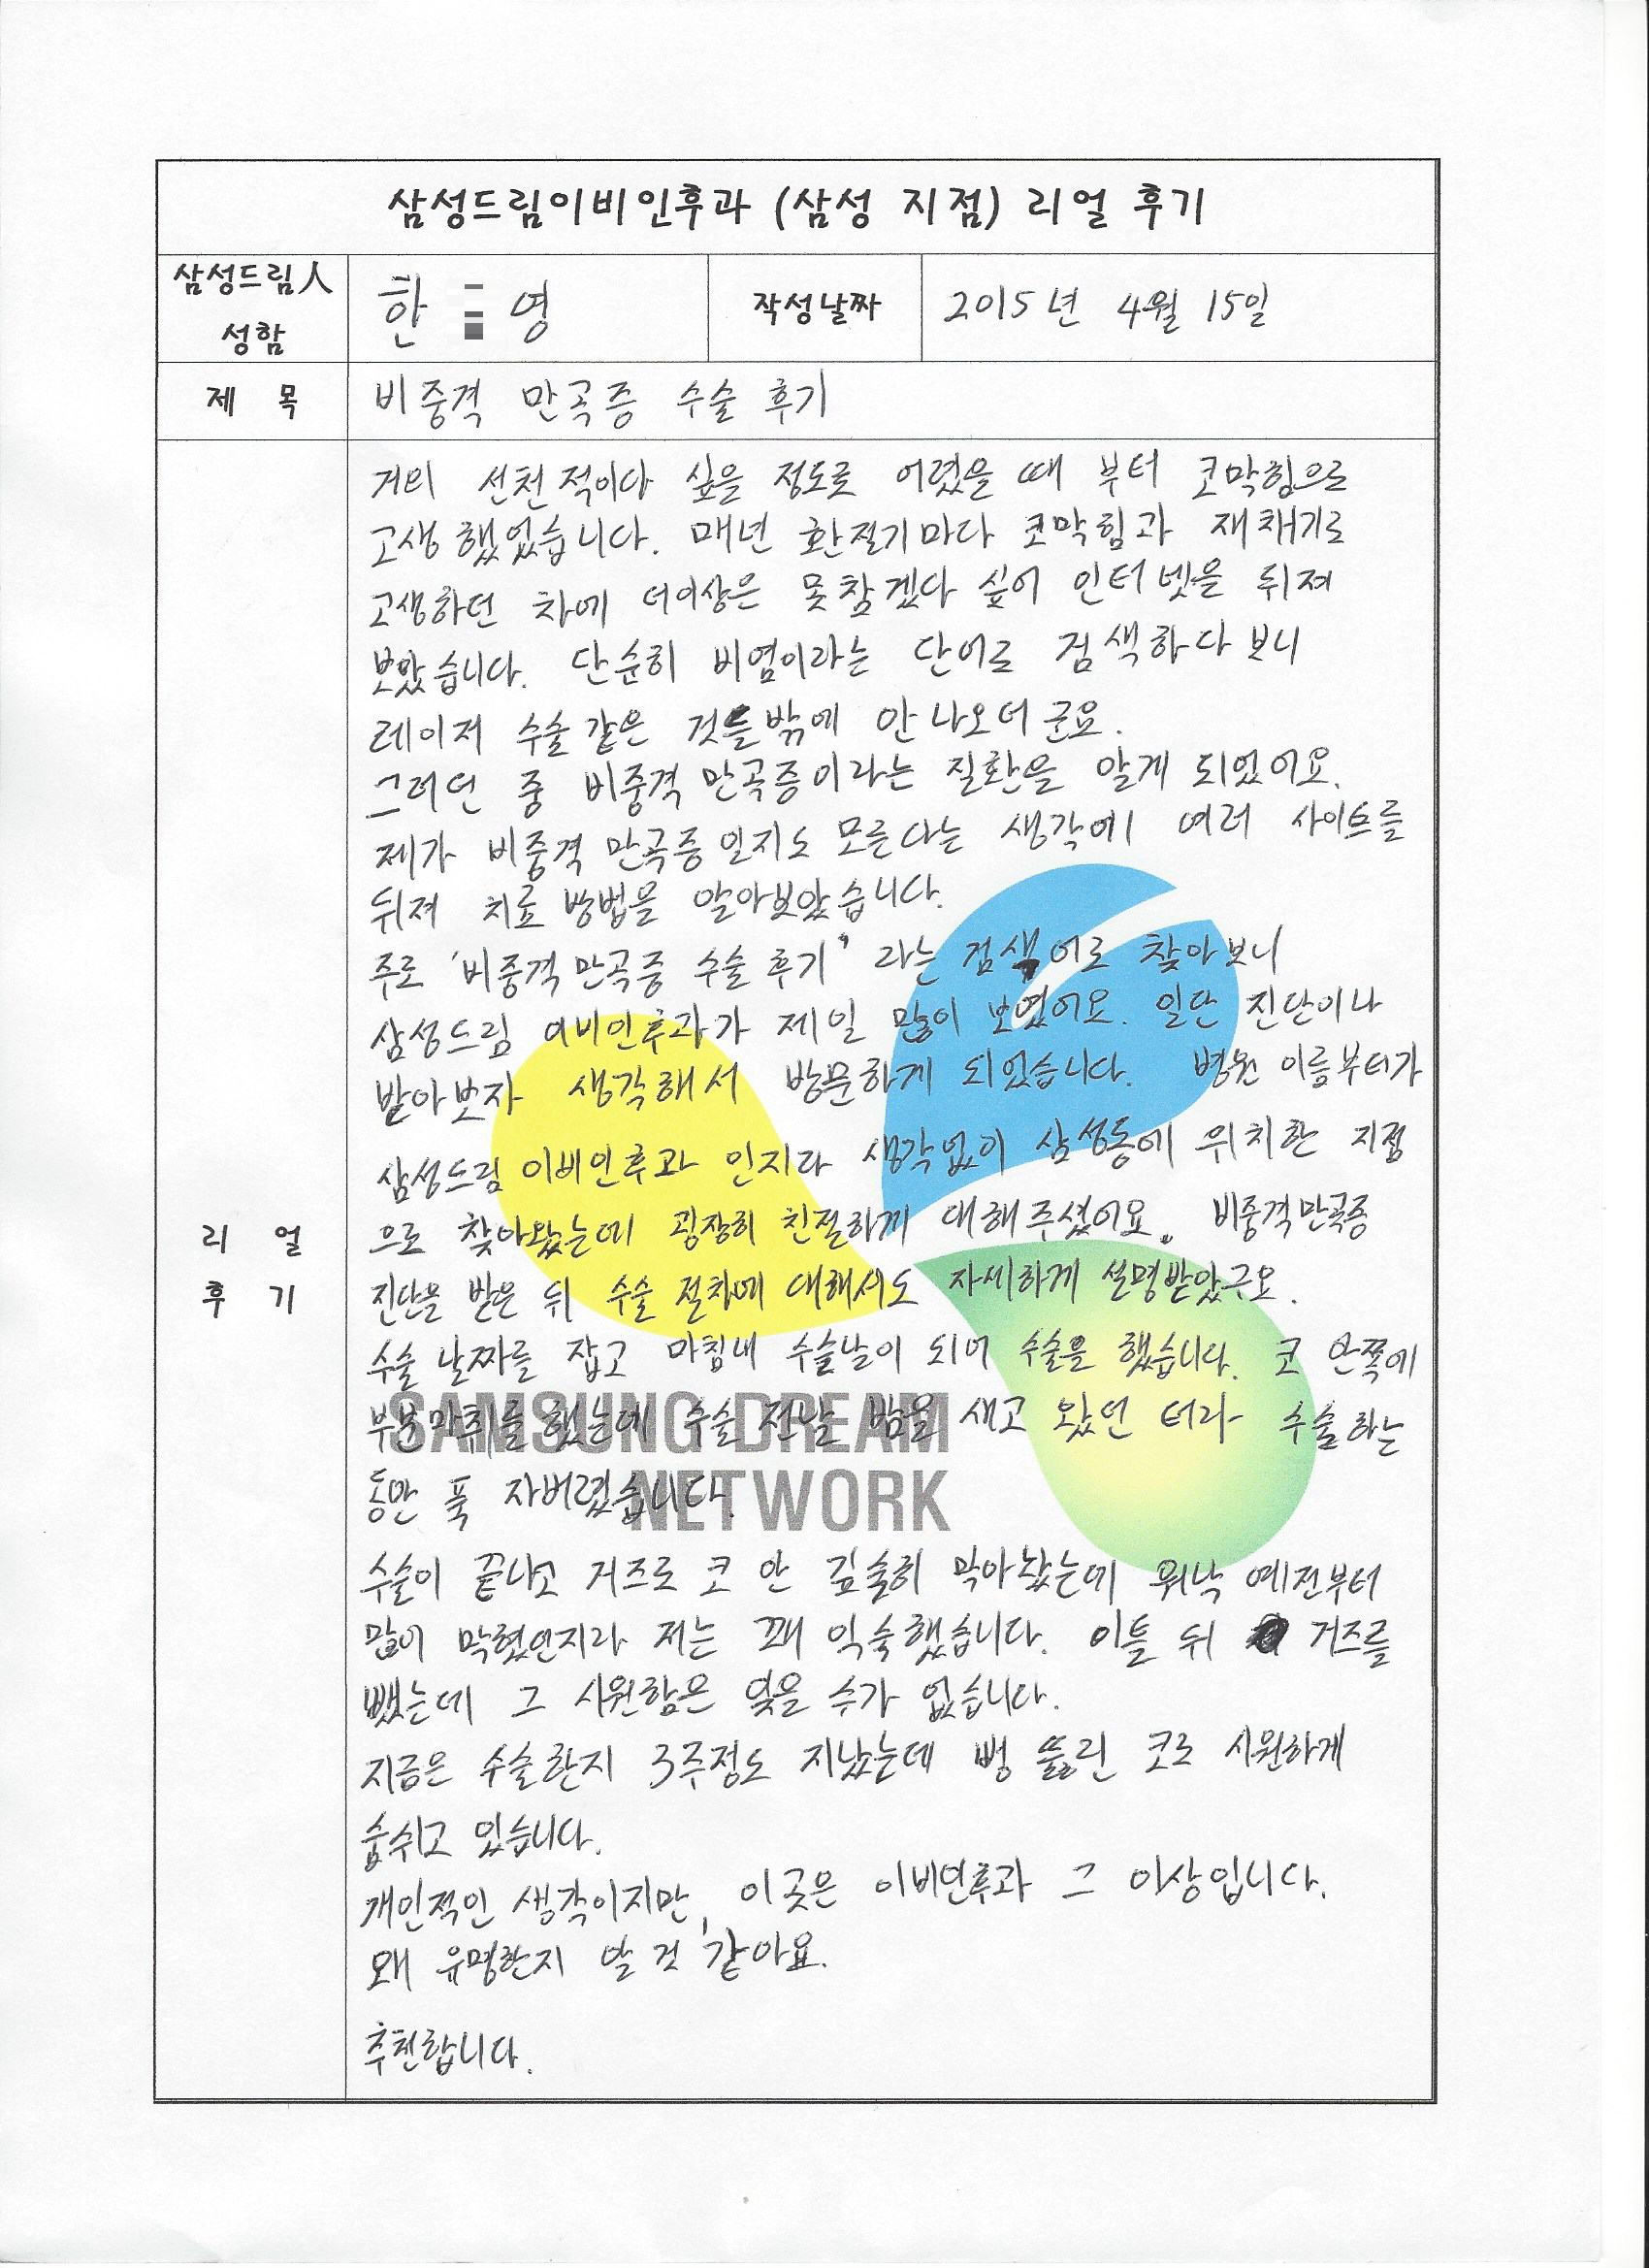 삼성드림이비인후과 (삼성 지점) 리얼 후기
삼성드림人
성함
한 영
작성날짜
2015년 4월 15일
제 목
비중격 만곡증 수술 후기
리 얼
후 기
거의 선천적이다 싶을 정도로 어렸을 때 부터 코막힘으로
고생했었습니다. 매년 환절기마다 코막힘과 재채기로
고생하던 차에 더이상은 못참겠다 싶어 인터넷을 뒤져
보았습니다. 단순히 비염이라는 단어로 검색하다 보니
레이저 수술같은 것들밖에 안 나오더군요.
그러던 중 비중격 만곡증이라는 질환을 알게 되었어요.
제가 비중격 만곡증인지도 모른다는 생각에 여러 사이트를
뒤져 치료 방법을 알아보았습니다.
주로 '비중격만곡증 수술후기' 라는 검색어로 찾아보니
삼성드림 이비인후과가 제일 많이 보였어요. 일단 진단이나
받아보자 생각해서 방문하게 되었습니다. 병원 이름부터가
삼성드림이비인후과 인지라 생각없이 삼성동에 위치한 지점
으로 찾아왔는데 굉장히 친절하게 대해주셨어요. 비중격만곡증
진단을 받은 뒤 수술 절차에 대해서도 자세하게 설명받았구요.
수술 날짜를 잡고 마침내 수술날이 되어 수술을 했습니다. 코 안쪽에
부분마취를 했는데 수술 전날 밤을 새고 왔던 터라 수술하는
동안 푹 자버렸습니다.
SAMSUNG DREAM
NETWORK
수술이 끝나고 거즈로 코 안 깊숙히 막아놨는데 워낙 예전부터
많이 막혔던지라 저는 꽤 익숙했습니다. 이틀 뒤 거즈를
뺐는데 그 시원함은 잊을 수가 없습니다.
지금은 수술한지 3주정도 지났는데 뻥 뚫린 코로 시원하게
숨쉬고 있습니다.
개인적인 생각이지만, 이곳은 이비인후과 그 이상입니다.
왜 유명한지 알 것 같아요.
추천합니다.